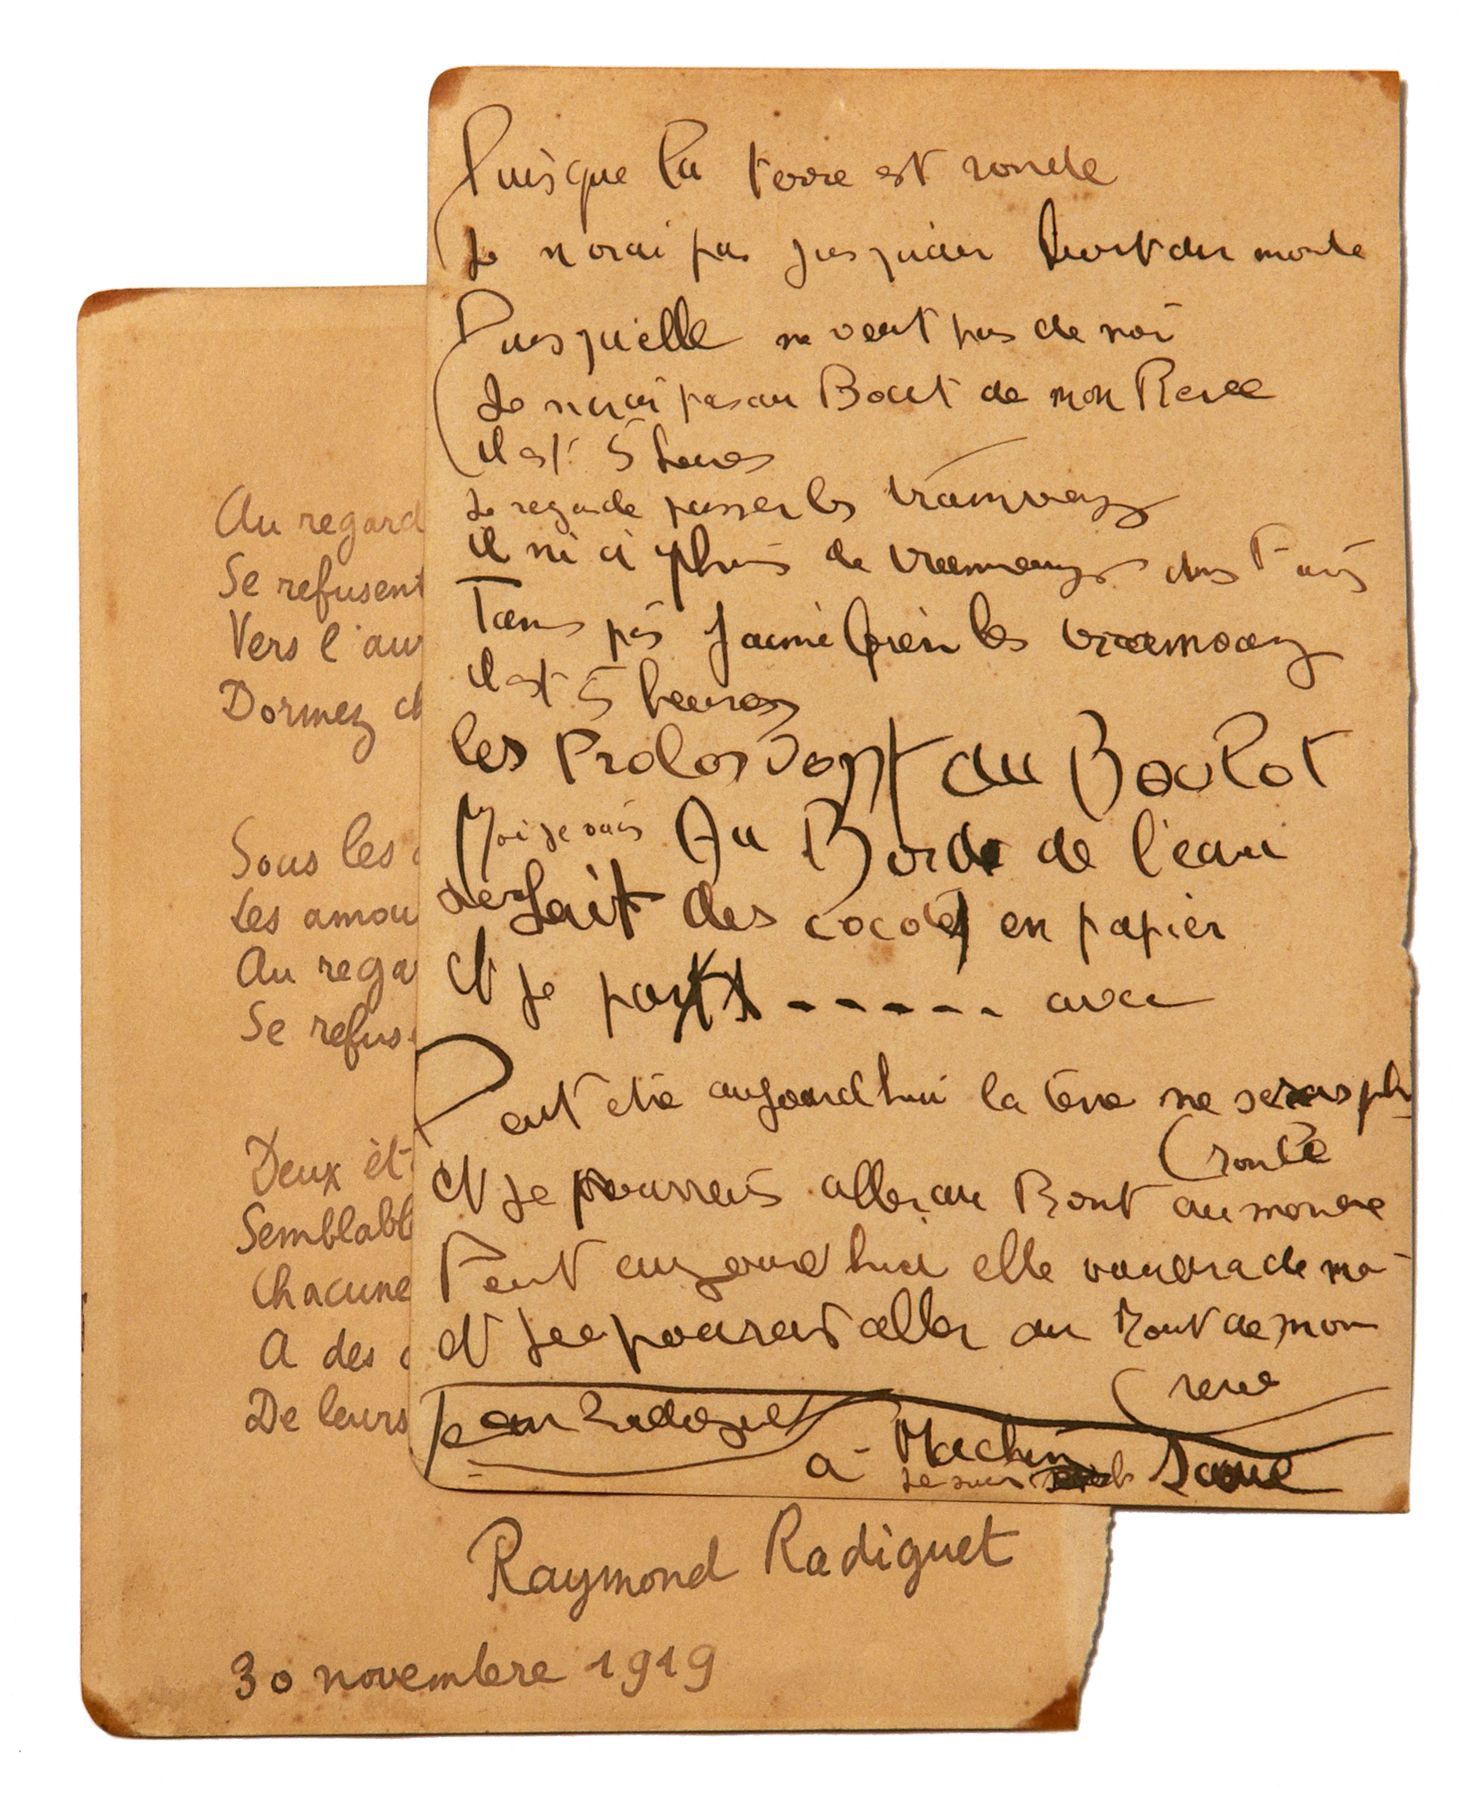 Puisque la terre est ronde
Je n irai pas jusquau bout du monde
Puisquelle ne veut pas de moi
Je nirai pas au Bout de mon Reve
il est 5 heures
Je regarde passer les tramways
il ni a plus de tramways dans Paris
Tans pis Jaime bien les tramways
il est 5 heures
les Prolos Vont au Boulot
Moi je vais Au Bord de l'eau
fait des cocotes en papier
et je parts ------ avec
Peut etre aujourdhui la terre ne seras plu
(ronde
et je pourrais aller au Bout du monde
Peut aujourdhui elle voudra de moi
et je pourais aller au bout de mon
(reve
Jean Radiguet
a Machin
Je suis
Au regard
Se refusent
Vers l'au
Dormez ch
Sous les
Les amou
Au rega
Se refus
Deux êt
Semblabl
Chacune
A des
De leurs
Raymond Radiguet
30 novembre 1919